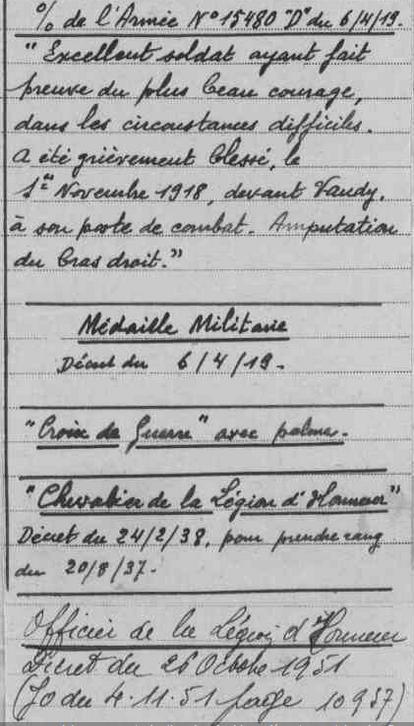 % de l'Armée N° 15480 "D" du 6/4/19.
"Excellent soldat ayant fait
preuve du plus beau courage,
dans les circonstances difficiles.
A été grièvement blessé, le
1er Novembre 1918, devant Vandy,
à son poste de combat. Amputation
du bras droit."
Médaille Militaire
Décret du 6/4/19.
"Croix de Guerre" avec palme.
"Chevalier de la Légion d'Honneur"
Décret du 24/2/38, pour prendre rang
du 20/8/37.
Officier de la Légion d'Honneur
Décret du 26 Octobre 1951
(JO du 4.11.51 page 10957)